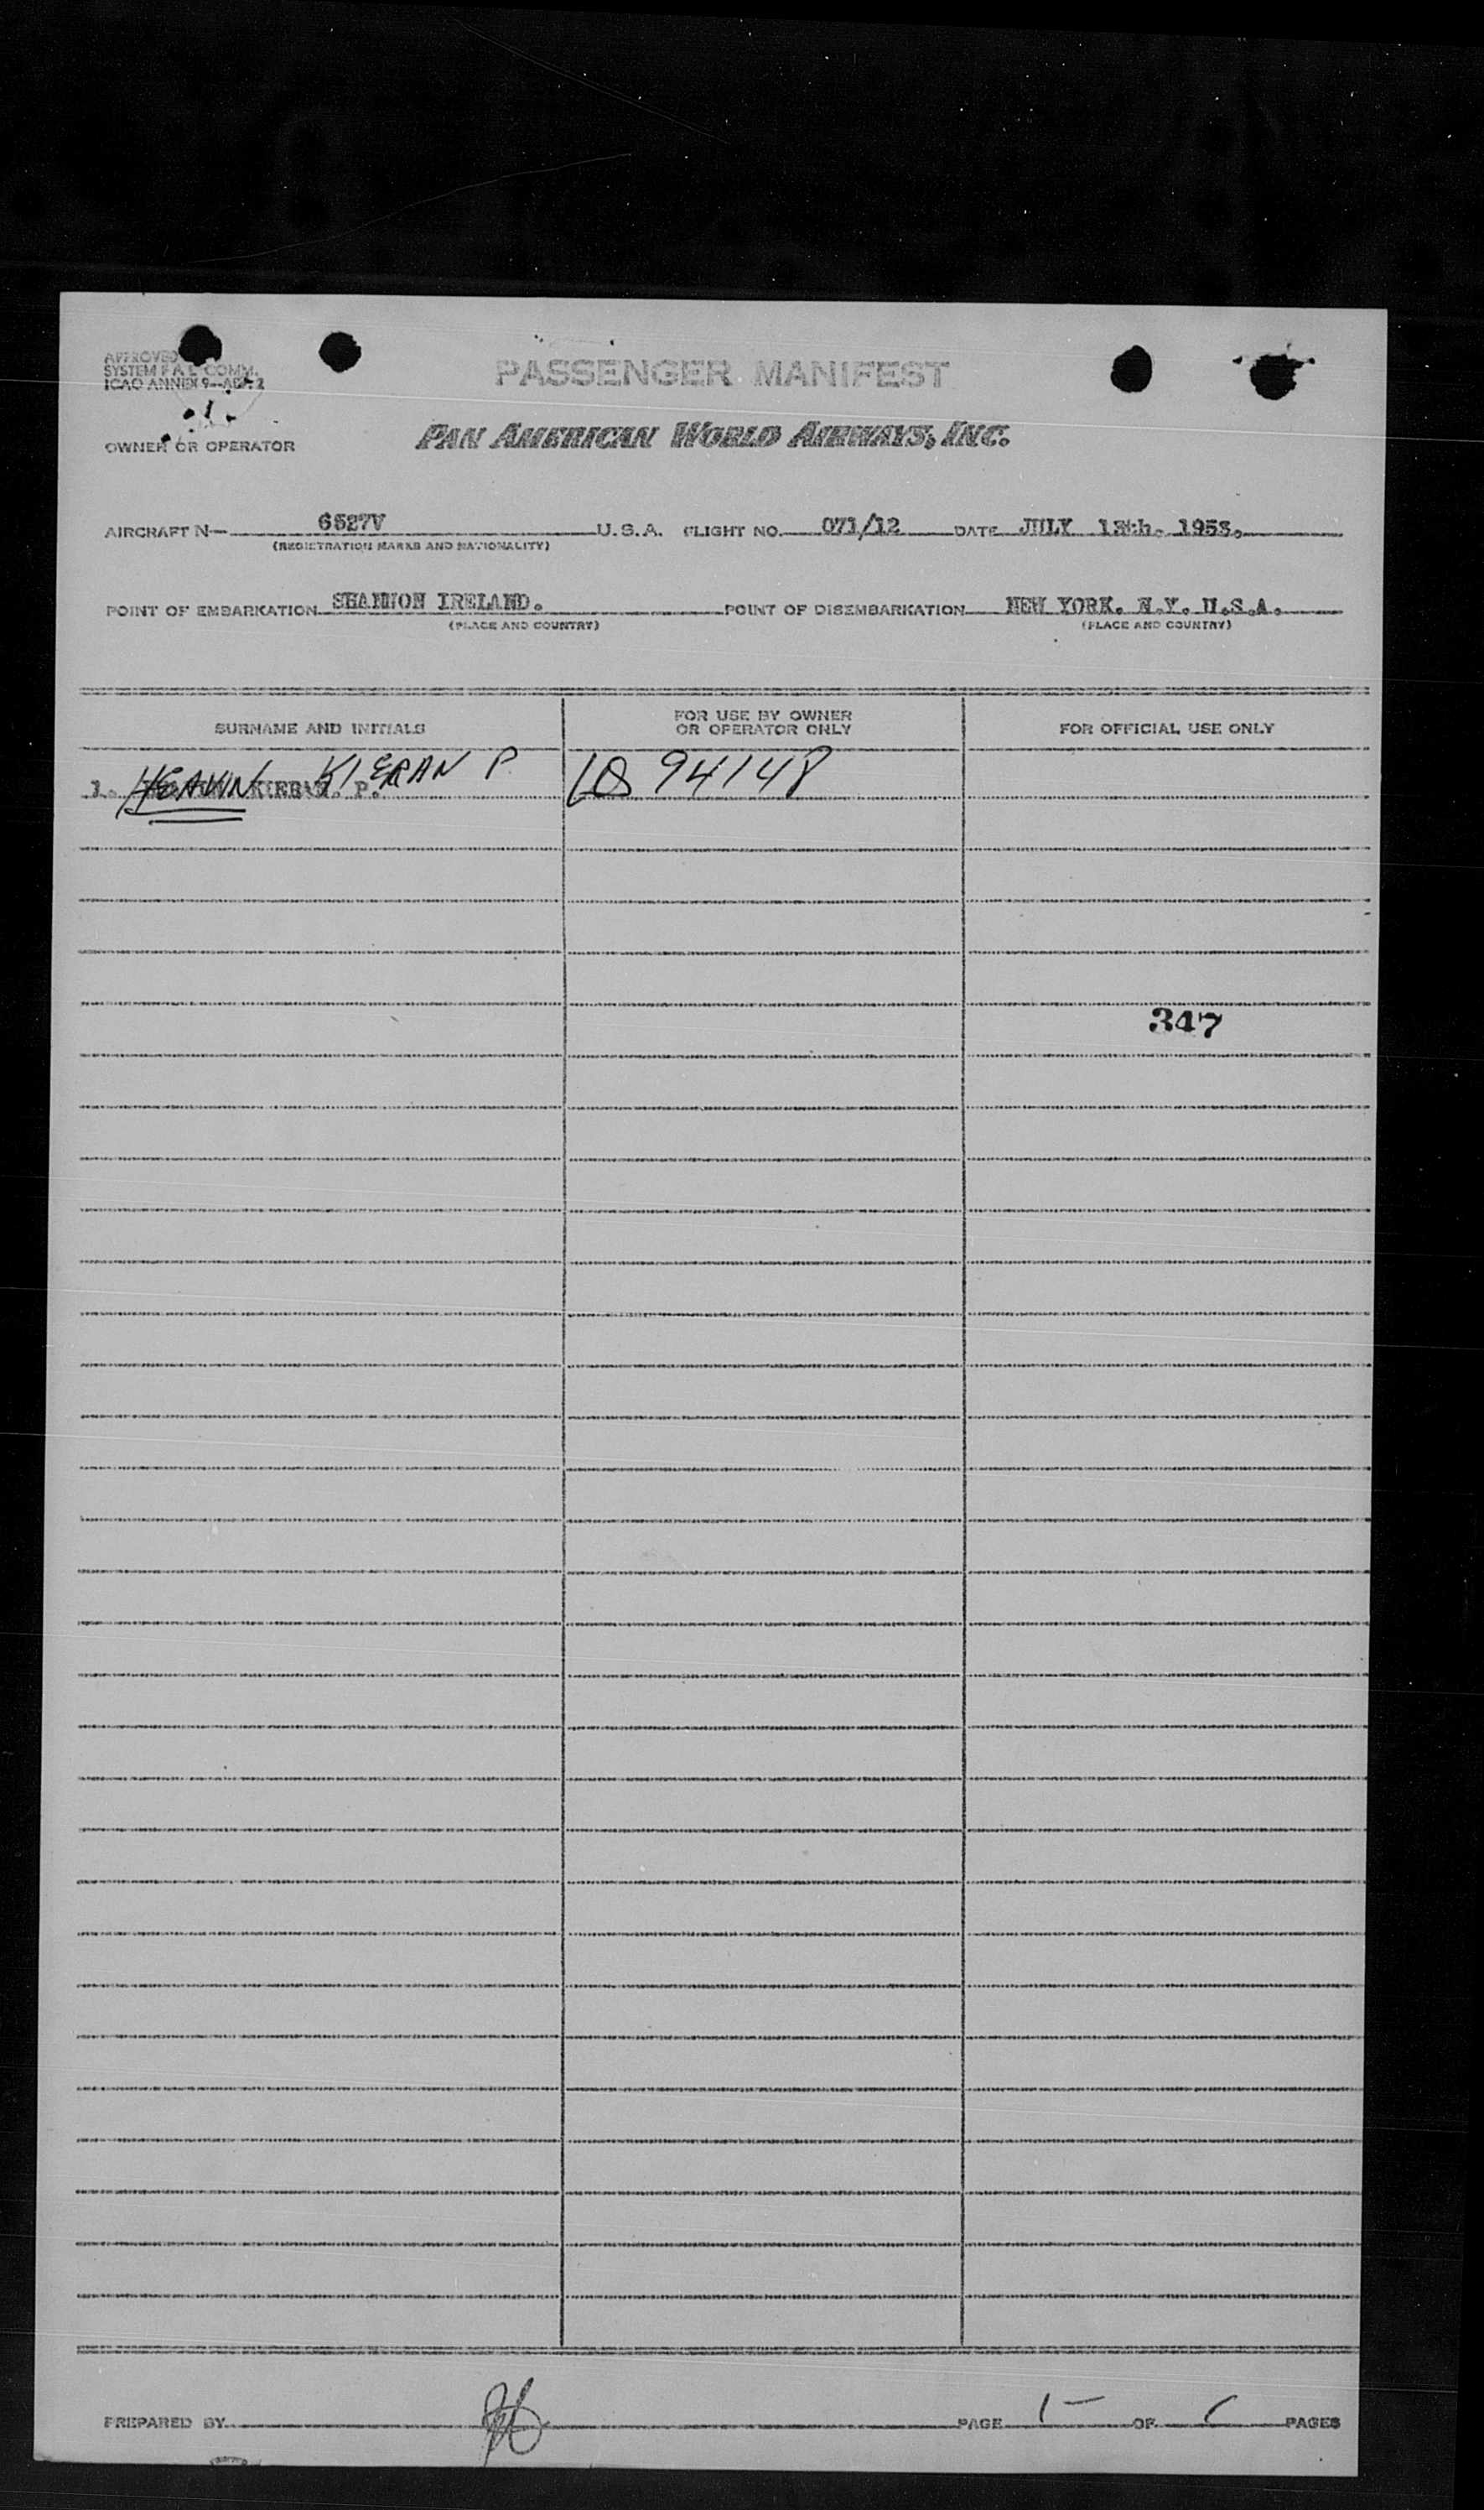 APPROVED
SYSTEM F A L COMM.
ICAO ANNEX 9—APP. 2
PASSENGER MANIFEST
OWNER OR OPERATOR
PAN AMERICAN WORLD AIRWAYS, INC.
AIRCRAFT N— 6527V U.S.A. FLIGHT NO. 071/12 DATE JULY 13th. 1953.
(REGISTRATION MARKS AND NATIONALITY)
POINT OF EMBARKATION SHANNON IRELAND. POINT OF DISEMBARKATION NEW YORK. N.Y. U.S.A.
(PLACE AND COUNTRY) (PLACE AND COUNTRY)
SURNAME AND INITIALS FOR USE BY OWNER OR OPERATOR ONLY FOR OFFICIAL USE ONLY
1. HEAVIN KIERAN P. 94148
347
PREPARED BY PAGE 1 OF 1 PAGES